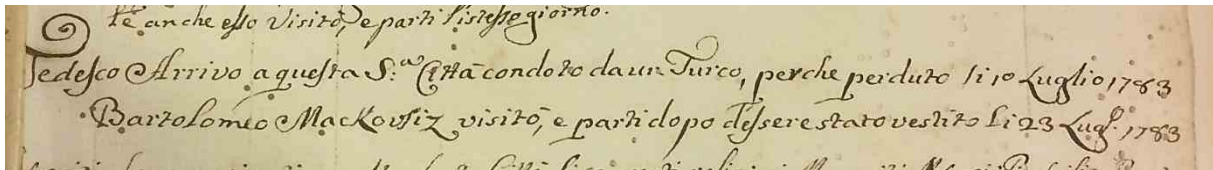 te anche esso Visitò, e parti l'istesso giorno.
Tedesco Arrivo a questa S.ª Città condoto da un Turco, perche perduto li 10 Luglio 1783
Bartolomeo Mackovsiz visitò, e parti dopo d'essere stato vestito li 23 Lugl. 1783